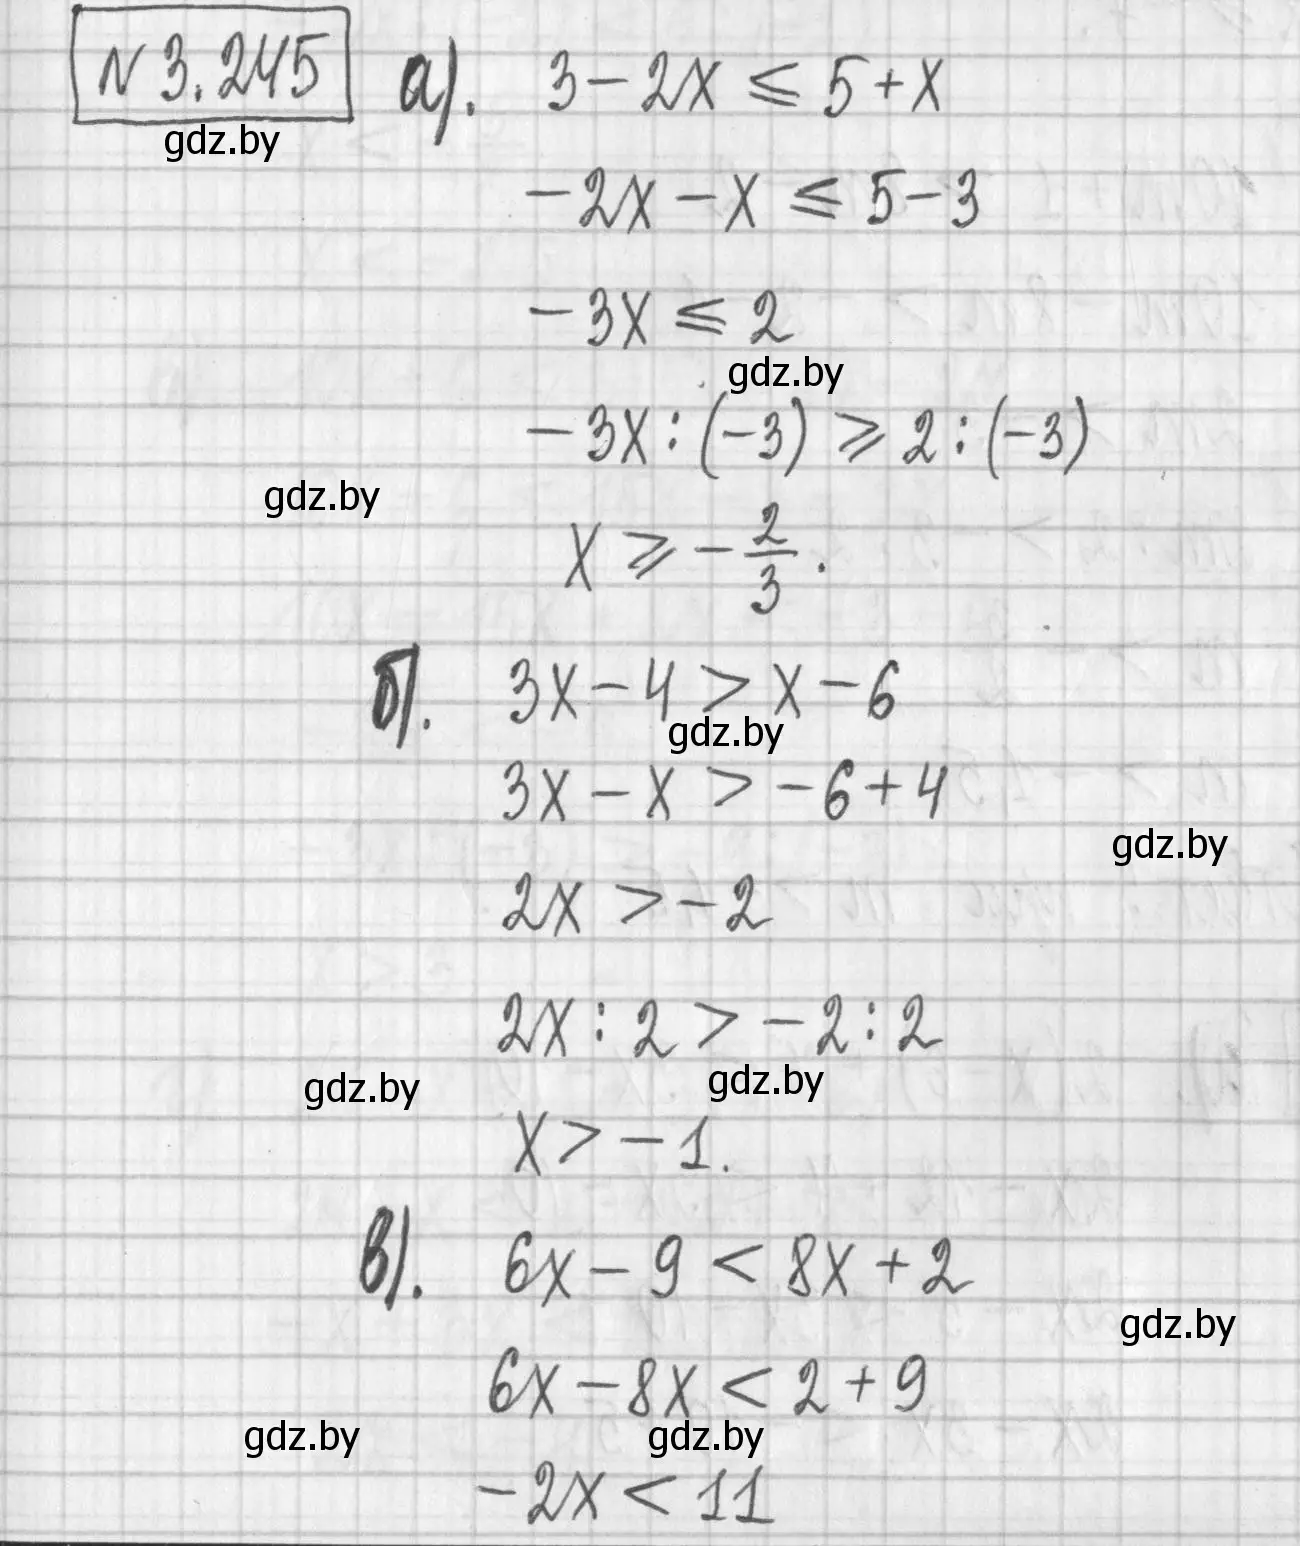 № 3.245 а). 3 - 2x ⩽ 5 + x
gdz.by
-2x - x ⩽ 5 - 3
-3x ⩽ 2
gdz.by
-3x : (-3) ⩾ 2 : (-3)
gdz.by
x ⩾ -2/3.
б). 3x - 4 > x - 6
gdz.by
3x - x > -6 + 4
gdz.by
2x > -2
2x : 2 > -2 : 2
gdz.by gdz.by
x > -1.
в). 6x - 9 < 8x + 2
gdz.by
6x - 8x < 2 + 9
gdz.by gdz.by
-2x < 11